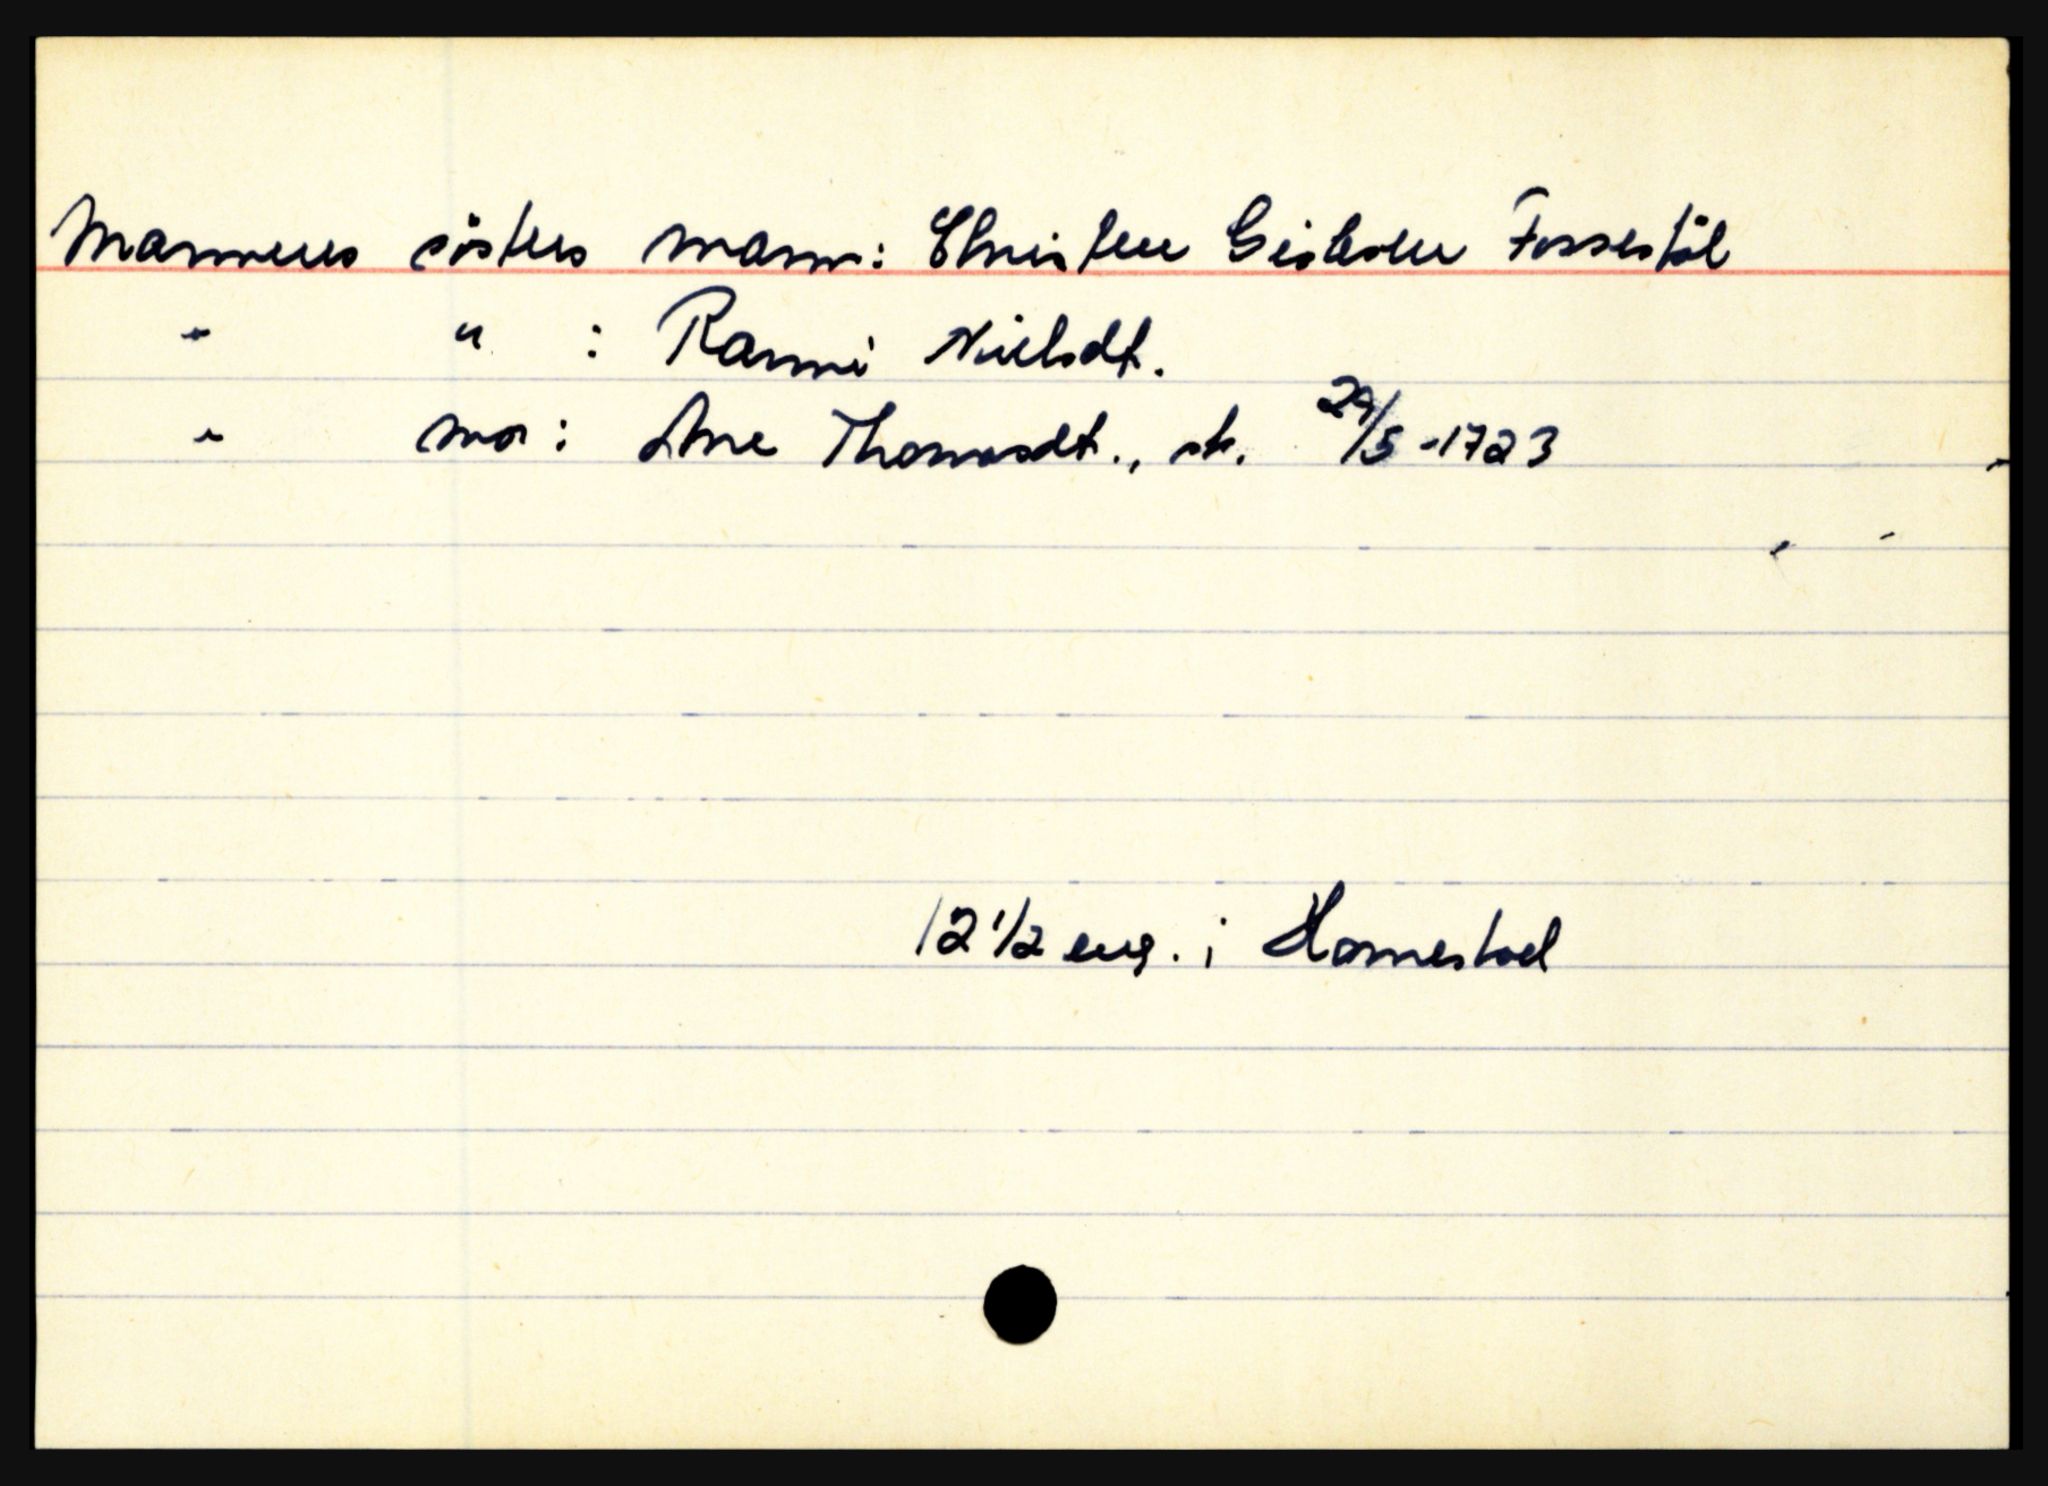 Mannens søsters mann: Christen Gislesen Fossestøl
" " : Ranni Nielsdt.
" mor: Ane Thomasdt., sk. 29/5-1723
12 1/2 eng. i Hamestad